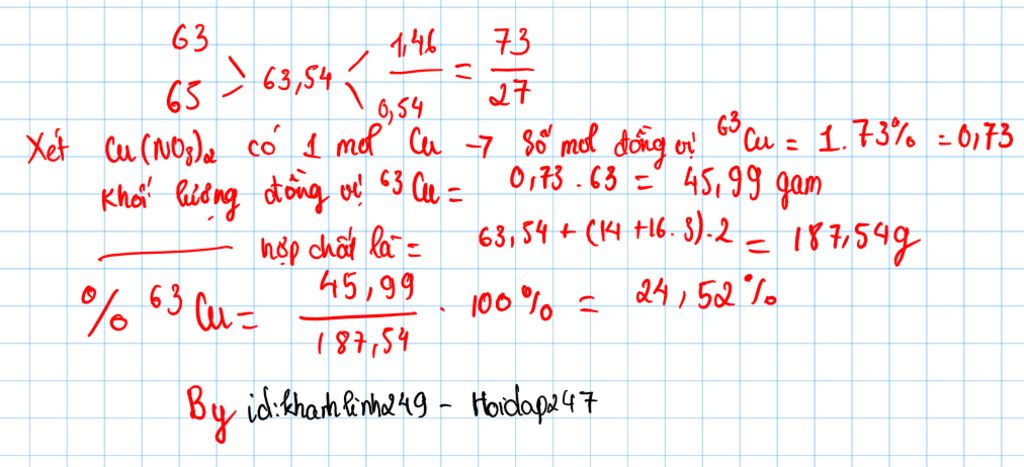 63
65
63,54
1,46
0,54
= 73
27
Xét Cu(NO3)2 có 1 mol Cu → Số mol đồng vị 63Cu = 1.73% = 0,73
Khối lượng đồng vị 63Cu = 0,73.63 = 45,99 gam
hợp chất là = 63,54 + (14 + 16.3).2 = 187,54g
% 63Cu = 45,99
187,54
. 100% = 24,52%
By id:khanhlinh249 - Hoidap247